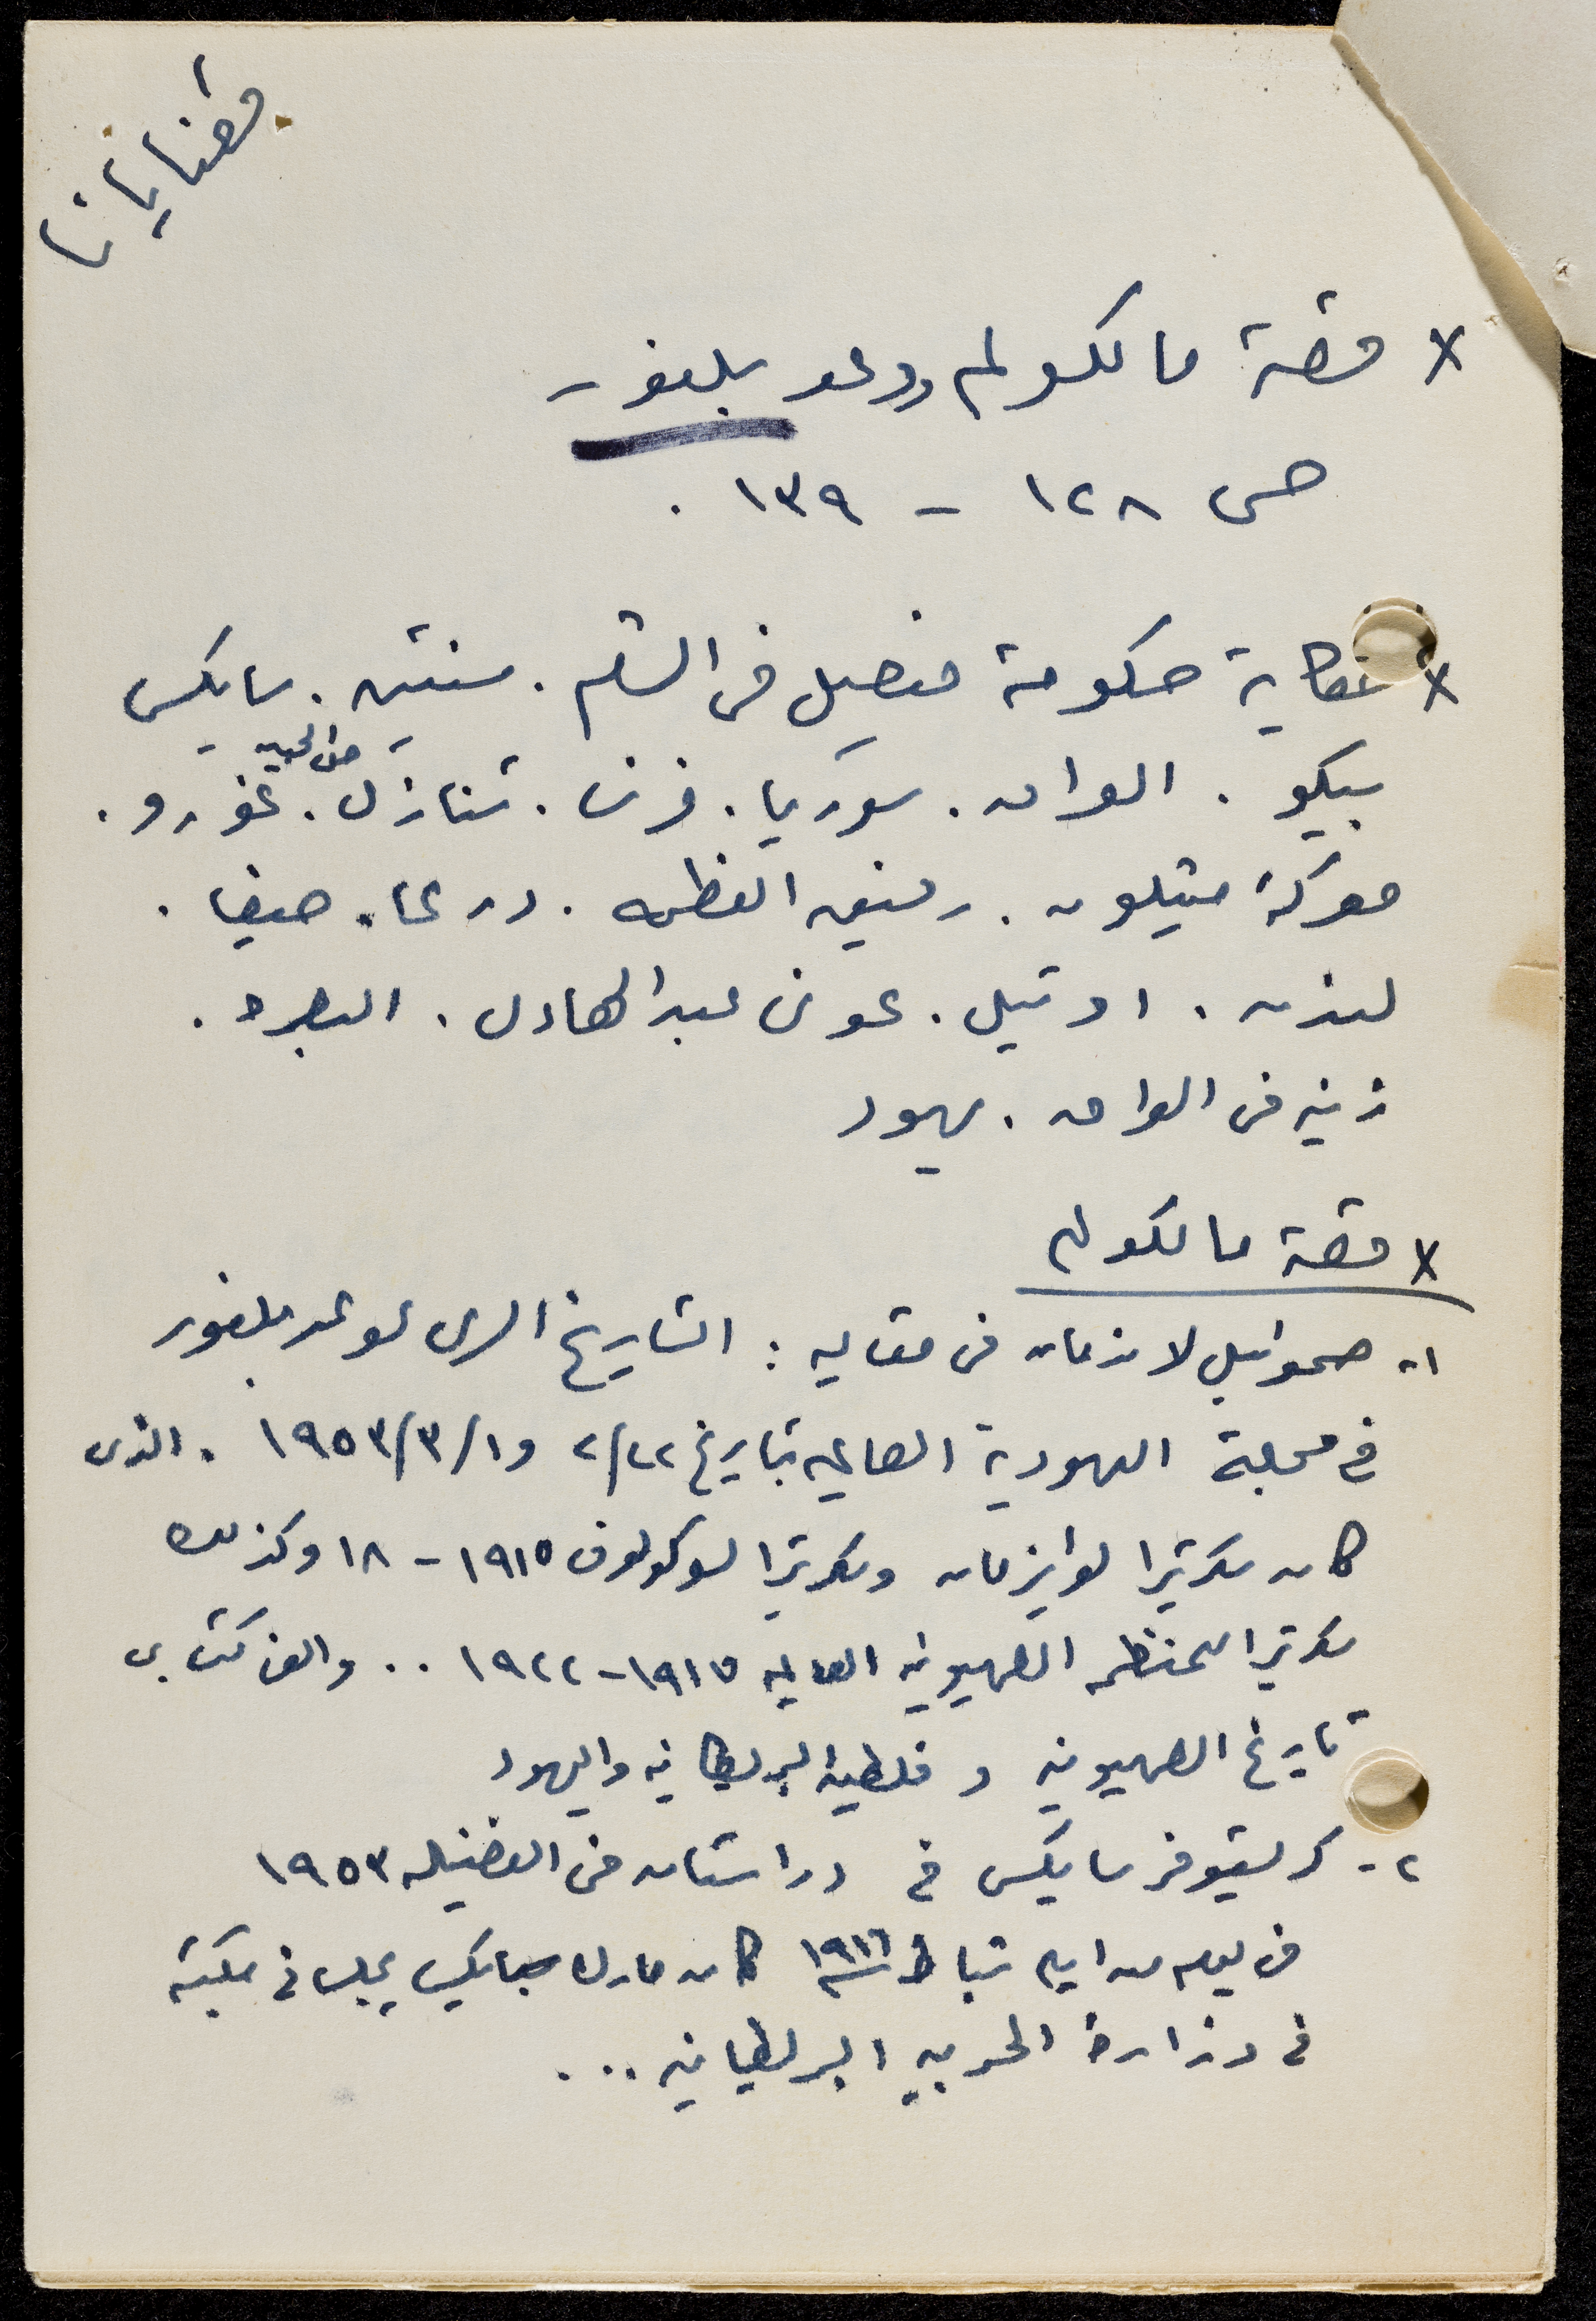 قضايانا
× قصة مالكولم ووعد بلفور
ص ١٢٨ - ١٣٩ .
× حكاية حكومة فيصل في الشام . سنتين . سايكس
بيكو . العراق . سوريا . فرنسا . تتنازل . غورو .
معركة ميسلون . يوسف العظمه . درعا . حيفا .
لندن . اوتيل . عوني عبد الهادي . البصره .
زينه في العراق . يهود
× قصة مالكولم
١- صموئيل لاندمان في مقاله : التاريخ السري لوعد بلفور
في مجلة اليهودية العالميه بتاريخ ٢٢/٢ و ١/٣/١٩٥٣ . الذي
كان سكرتيرا لوايزمان وسكرتيرا لسوكولوف ١٩١٥ - ١٨ وكذلك
سكرتيرا للمنظمه الصهيونيه العالميه ١٩١٧ - ١٩٢٢ .. والف كتابي
تاريخ الصهيونيه و فلسطين البريطانيه واليهود
٢- كريستوفر سايكس في دراستان في الفضيله ١٩٥٣
في يوم من ايام شباط ١٩١٦ كان مارك سايكس يجلس في مكتبه
في وزارة الحربيه البريطانيه ...